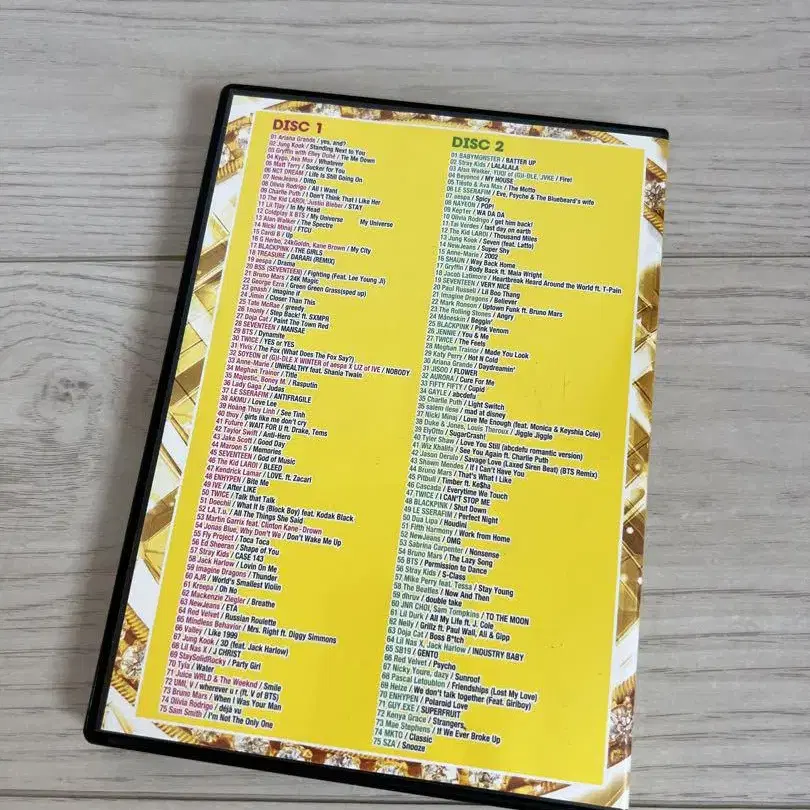 DISC 1
01 Ariana Grande / yes, and?
02 Jung Kook / Standing Next to You
03 Gryffin with Elley Duhé / Tie Me Down
04 Kygo, Ava Max / Whatever
05 Matt Terry / Sucker for You
06 NCT DREAM / Life Is Still Going On
07 NewJeans / Ditto
08 Olivia Rodrigo / All I Want
09 Charlie Puth / I Don't Think That I Like Her
10 The Kid LAROI, Justin Bieber / STAY
11 Lil Tjay / In My Head
12 Coldplay X BTS / My Universe My Universe
13 Alan Walker / The Spectre
14 Nicki Minaj / FTCU
15 Cardi B / Up
16 G Herbo, 24kGoldn, Kane Brown / My City
17 BLACKPINK / THE GIRLS
18 TREASURE / DARARI (REMIX)
19 aespa / Drama
20 BSS (SEVENTEEN) / Fighting (Feat. Lee Young Ji)
21 Bruno Mars / 24K Magic
22 George Ezra / Green Green Grass(sped up)
23 gnash / imagine if
24 Jimin / Closer Than This
25 Tate McRae / greedy
26 1nonly / Step Back! ft. SXMPR
27 Doja Cat / Paint The Town Red
28 SEVENTEEN / MANSAE
29 BTS / Dynamite
30 TWICE / YES or YES
31 Ylvis / The Fox (What Does the Fox Say?)
32 SOYEON of (G)I-DLE X WINTER of aespa X LIZ of IVE / NOBODY
33 Anne-Marie / UNHEALTHY feat. Shania Twain
34 Meghan Trainor / Title
35 Majestic, Boney M. / Rasputin
36 Lady Gaga / Judas
37 LE SSERAFIM / ANTIFRAGILE
38 AKMU / Love Lee
39 Hoàng Thuỳ Linh / See Tình
40 thuy / girls like me don't cry
41 Future / WAIT FOR U ft. Drake, Tems
42 Taylor Swift / Anti-Hero
43 Jake Scott / Good Day
44 Maroon 5 / Memories
45 SEVENTEEN / God of Music
46 The Kid LAROI / BLEED
47 Kendrick Lamar / LOVE. ft. Zacari
48 ENHYPEN / Bite Me
49 IVE / After LIKE
50 TWICE / Talk that Talk
51 Doechii / What It Is (Block Boy) feat. Kodak Black
52 t.A.T.u. / All The Things She Said
53 Martin Garrix feat. Clinton Kane - Drown
54 Jonas Blue, Why Don't We / Don't Wake Me Up
55 Fly Project / Toca Toca
56 Ed Sheeran / Shape of You
57 Stray Kids / CASE 143
58 Jack Harlow / Lovin On Me
59 Imagine Dragons / Thunder
60 AJR / World's Smallest Violin
61 Kreepa / Oh No
62 Mackenzie Ziegler / Breathe
63 NewJeans / ETA
64 Red Velvet / Russian Roulette
65 Mindless Behavior / Mrs. Right ft. Diggy Simmons
66 Valley / Like 1999
67 Jung Kook / 3D (feat. Jack Harlow)
68 Lil Nas X / J CHRIST
69 SlaySolidRocky / Party Girl
70 Tyla / Water
71 Juice WRLD & The Weeknd / Smile
72 UMI, V / wherever u r (ft. V of BTS)
73 Bruno Mars / When I Was Your Man
74 Olivia Rodrigo / déjà vu
75 Sam Smith / I'm Not The Only One
DISC 2
01 BABYMONSTER / BATTER UP
02 Stray Kids / LALALALA
03 Alan Walker, YUQI of (G)I-DLE, JVKE / Fire!
04 Beyoncé / MY HOUSE
05 Tiësto & Ava Max / The Motto
06 LE SSERAFIM / Eve, Psyche & The Bluebeard's wife
07 aespa / Spicy
08 NAYEON / POP!
09 Kep1er / WA DA DA
10 Olivia Rodrigo / get him back!
11 Tai Verdes / last day on earth
12 The Kid LAROI / Thousand Miles
13 Jung Kook / Seven (feat. Latto)
14 NewJeans / Super Shy
15 Anne-Marie / 2002
16 SHAUN / Way Back Home
17 Gryffin / Body Back ft. Maia Wright
18 Jacob Latimore / Heartbreak Heard Around the World ft. T-Pain
19 SEVENTEEN / VERY NICE
20 Paul Russell / Lil Boo Thang
21 Imagine Dragons / Believer
22 Mark Ronson / Uptown Funk ft. Bruno Mars
23 The Rolling Stones / Angry
24 Måneskin / Beggin'
25 BLACKPINK / Pink Venom
26 JENNIE / You & Me
27 TWICE / The Feels
28 Meghan Trainor / Made You Look
29 Katy Perry / Hot N Cold
30 Ariana Grande / Daydreamin'
31 JISOO / FLOWER
32 AURORA / Cure For Me
33 FIFTY FIFTY / Cupid
34 GAYLE / abcdefu
35 Charlie Puth / Light Switch
36 salem ilese / mad at disney
37 Nicki Minaj / Love Me Enough (feat. Monica & Keyshia Cole)
38 Duke & Jones, Louis Theroux / Jiggle Jiggle
39 ElyOtto / SugarCrash!
40 Tyler Shaw / Love You Still (abcdefu romantic version)
41 Wiz Khalifa / See You Again ft. Charlie Puth
42 Jason Derulo / Savage Love (Laxed Siren Beat) (BTS Remix)
43 Shawn Mendes / If I Can't Have You
44 Bruno Mars / That's What I Like
45 Pitbull / Timber ft. Ke$ha
46 Cascada / Everytime We Touch
47 TWICE / I CAN'T STOP ME
48 BLACKPINK / Shut Down
49 LE SSERAFIM / Perfect Night
50 Dua Lipa / Houdini
51 Fifth Harmony / Work from Home
52 NewJeans / OMG
53 Sabrina Carpenter / Nonsense
54 Bruno Mars / The Lazy Song
55 BTS / Permission to Dance
56 Stray Kids / S-Class
57 Mike Perry feat. Tessa / Stay Young
58 The Beatles / Now And Then
59 dhruv / double take
60 JNR CHOI, Sam Tompkins / TO THE MOON
61 Lil Durk / All My Life ft. J. Cole
62 Nelly / Grillz ft. Paul Wall, Ali & Gipp
63 Doja Cat / Boss B*tch
64 Lil Nas X, Jack Harlow / INDUSTRY BABY
65 SB19 / GENTO
66 Red Velvet / Psycho
67 Nicky Youre, dazy / Sunroof
68 Pascal Letoublon / Friendships (Lost My Love)
69 Heize / We don't talk together (Feat. Giriboy)
70 ENHYPEN / Polaroid Love
71 GUY.EXE / SUPERFRUIT
72 Kenya Grace / Strangers
73 Mae Stephens / If We Ever Broke Up
74 MKTO / Classic
75 SZA / Snooze